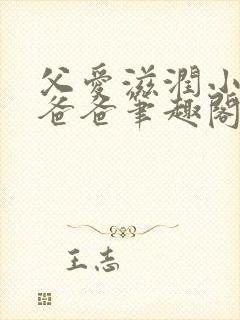 父爱滋润小
爸爸笔趣阁
王志